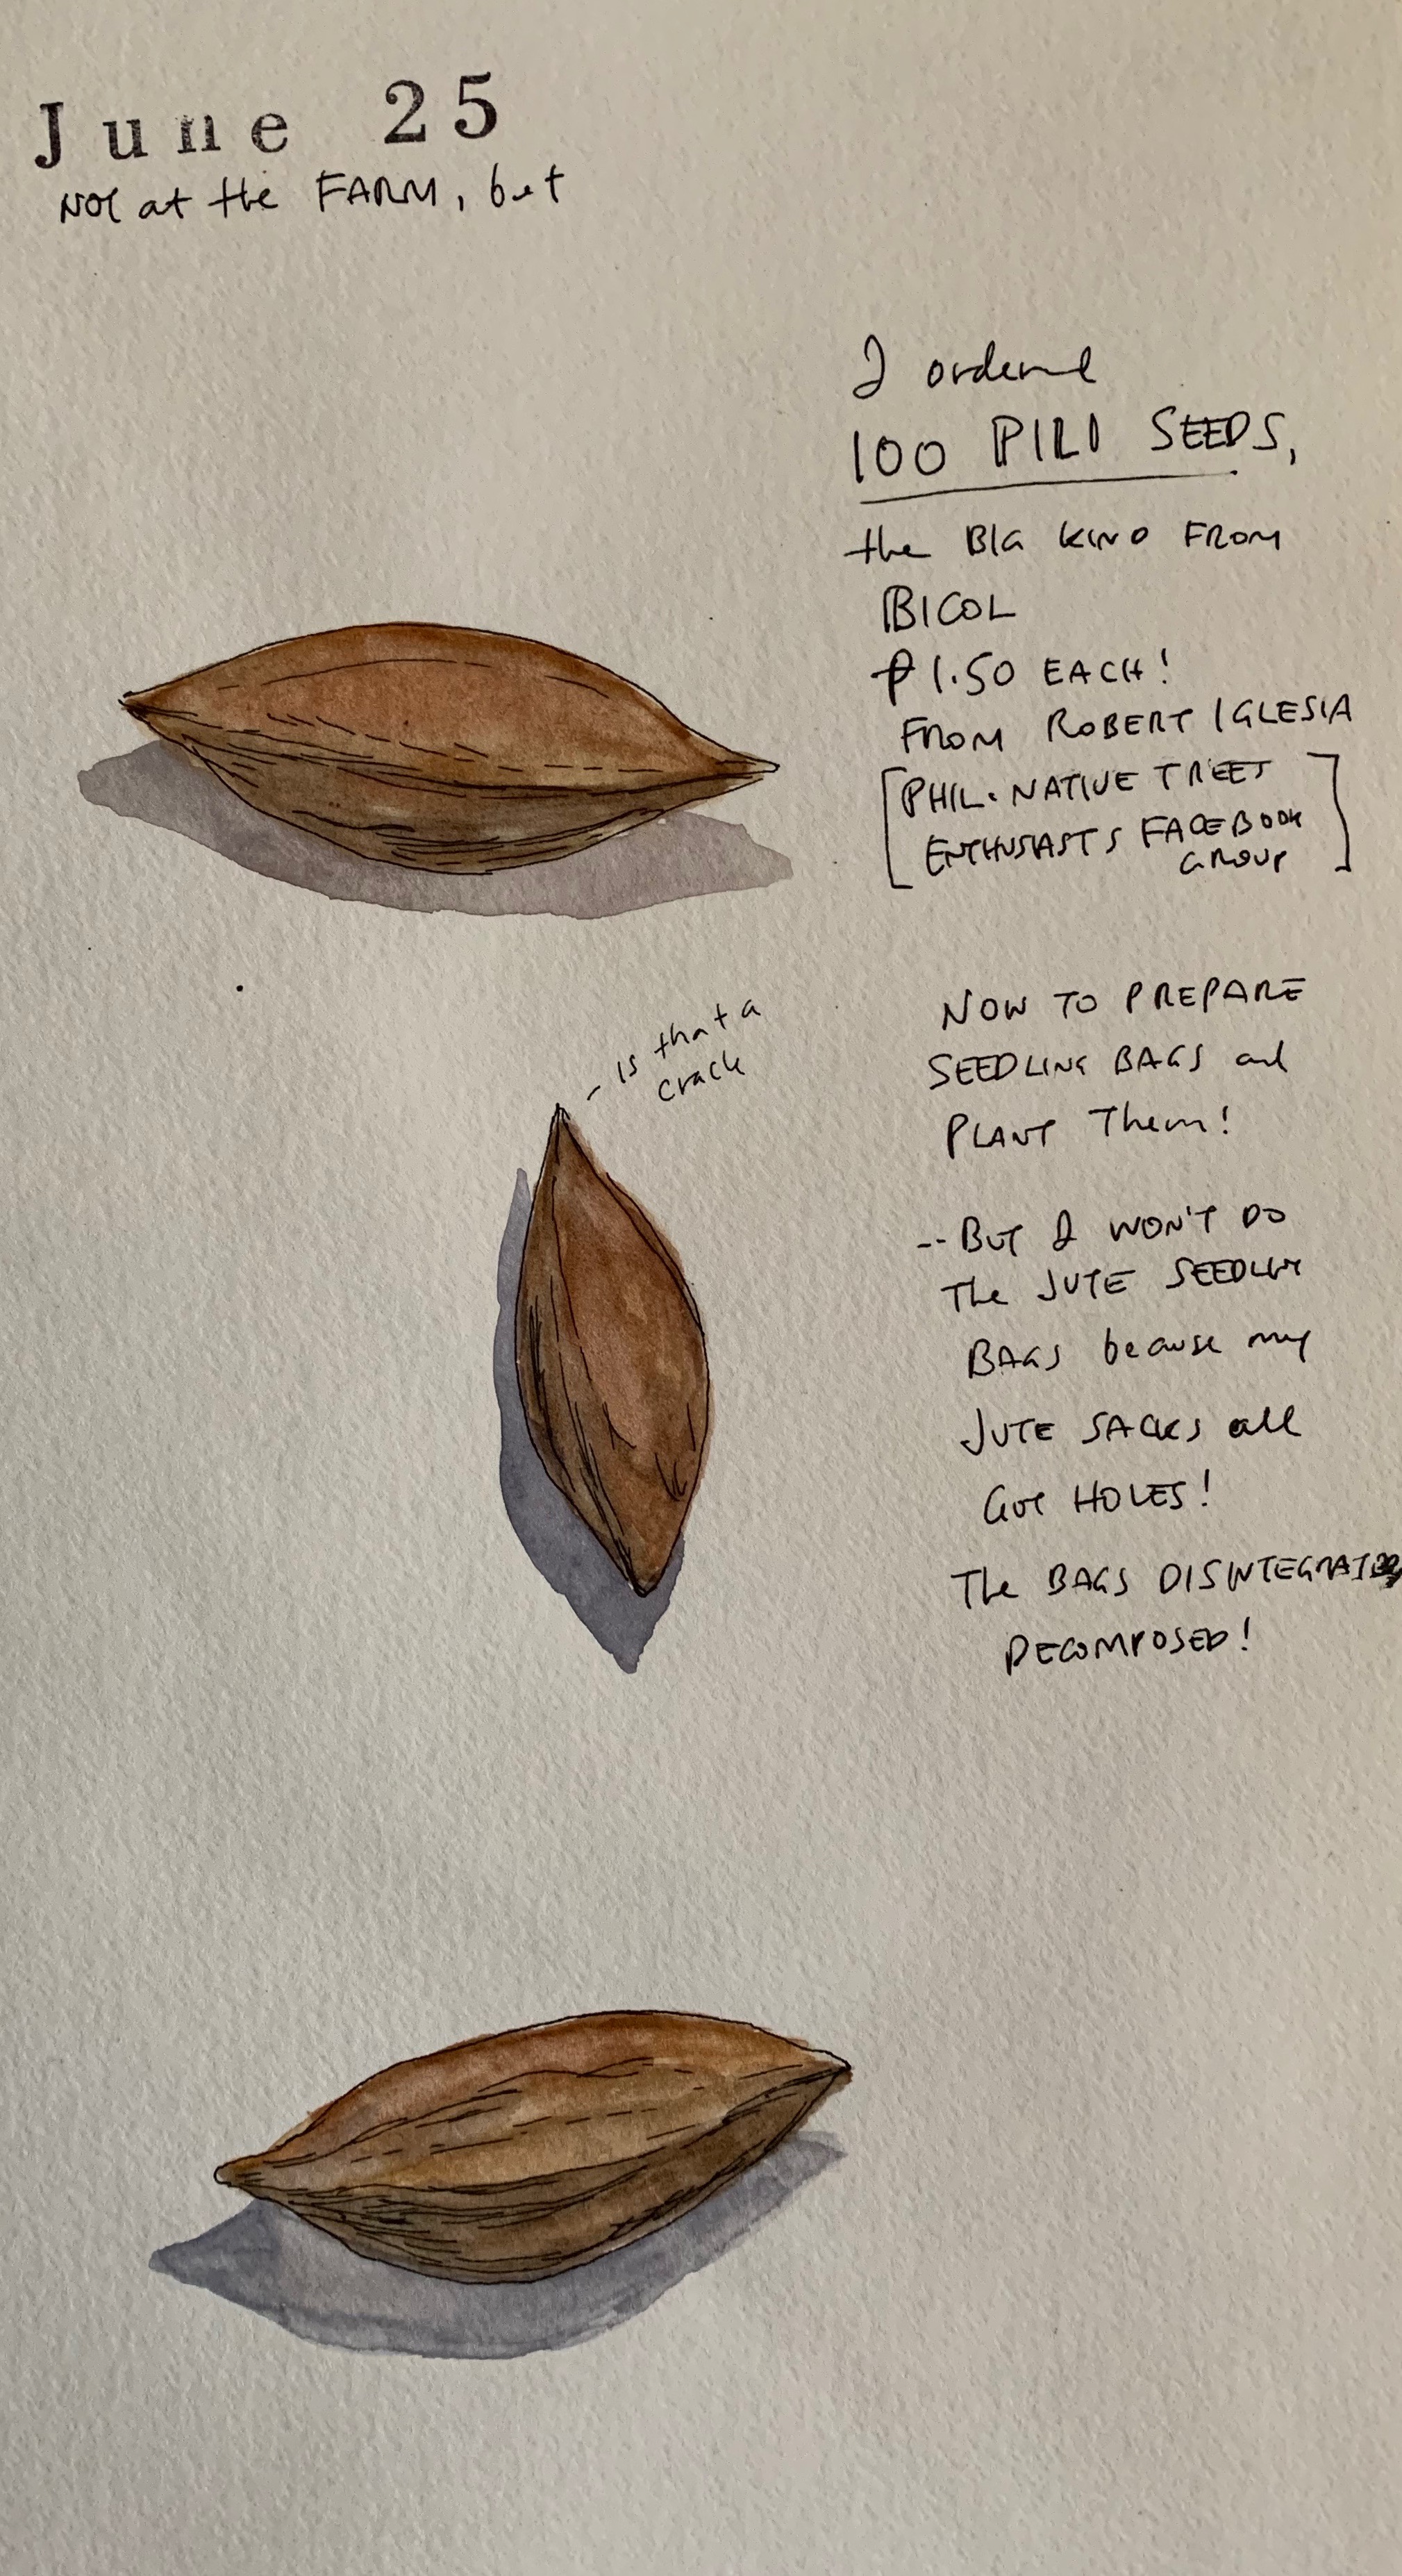 June 25
NOT at the FARM, but
I ordered
100 PILI SEEDS,
the BIG KIND FROM
BICOL
₱1.50 EACH!
FROM ROBERT IGLESIA
[PHIL. NATIVE TREES
ENTHUSIASTS FACEBOOK
GROUP]
- is that a
crack
NOW TO PREPARE
SEEDLING BAGS and
PLANT Them!
-- BUT I WON'T DO
The JUTE SEEDLING
BAGS because my
JUTE SACKS all
GOT HOLES!
The BAGS DISINTEGRATED
DECOMPOSED!